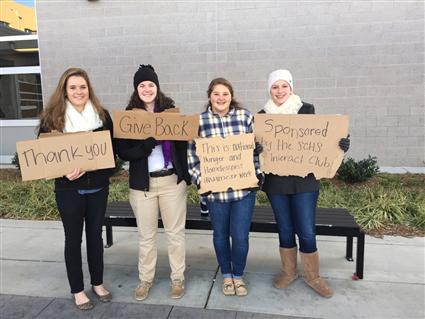 Thank you
Give Back
This is National
Hunger and
Homelessness
Awareness Week
Sponsored
by the SCHS
Interact Club!